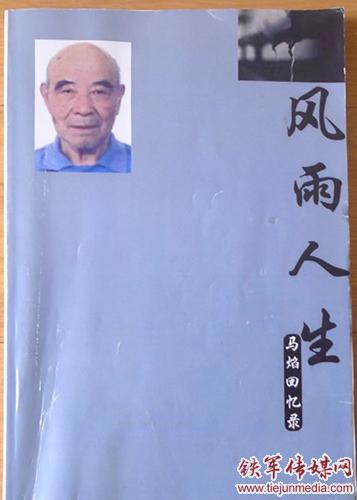 风雨人生
马焰回忆录
铁军传媒网
www.tiejunmedia.com